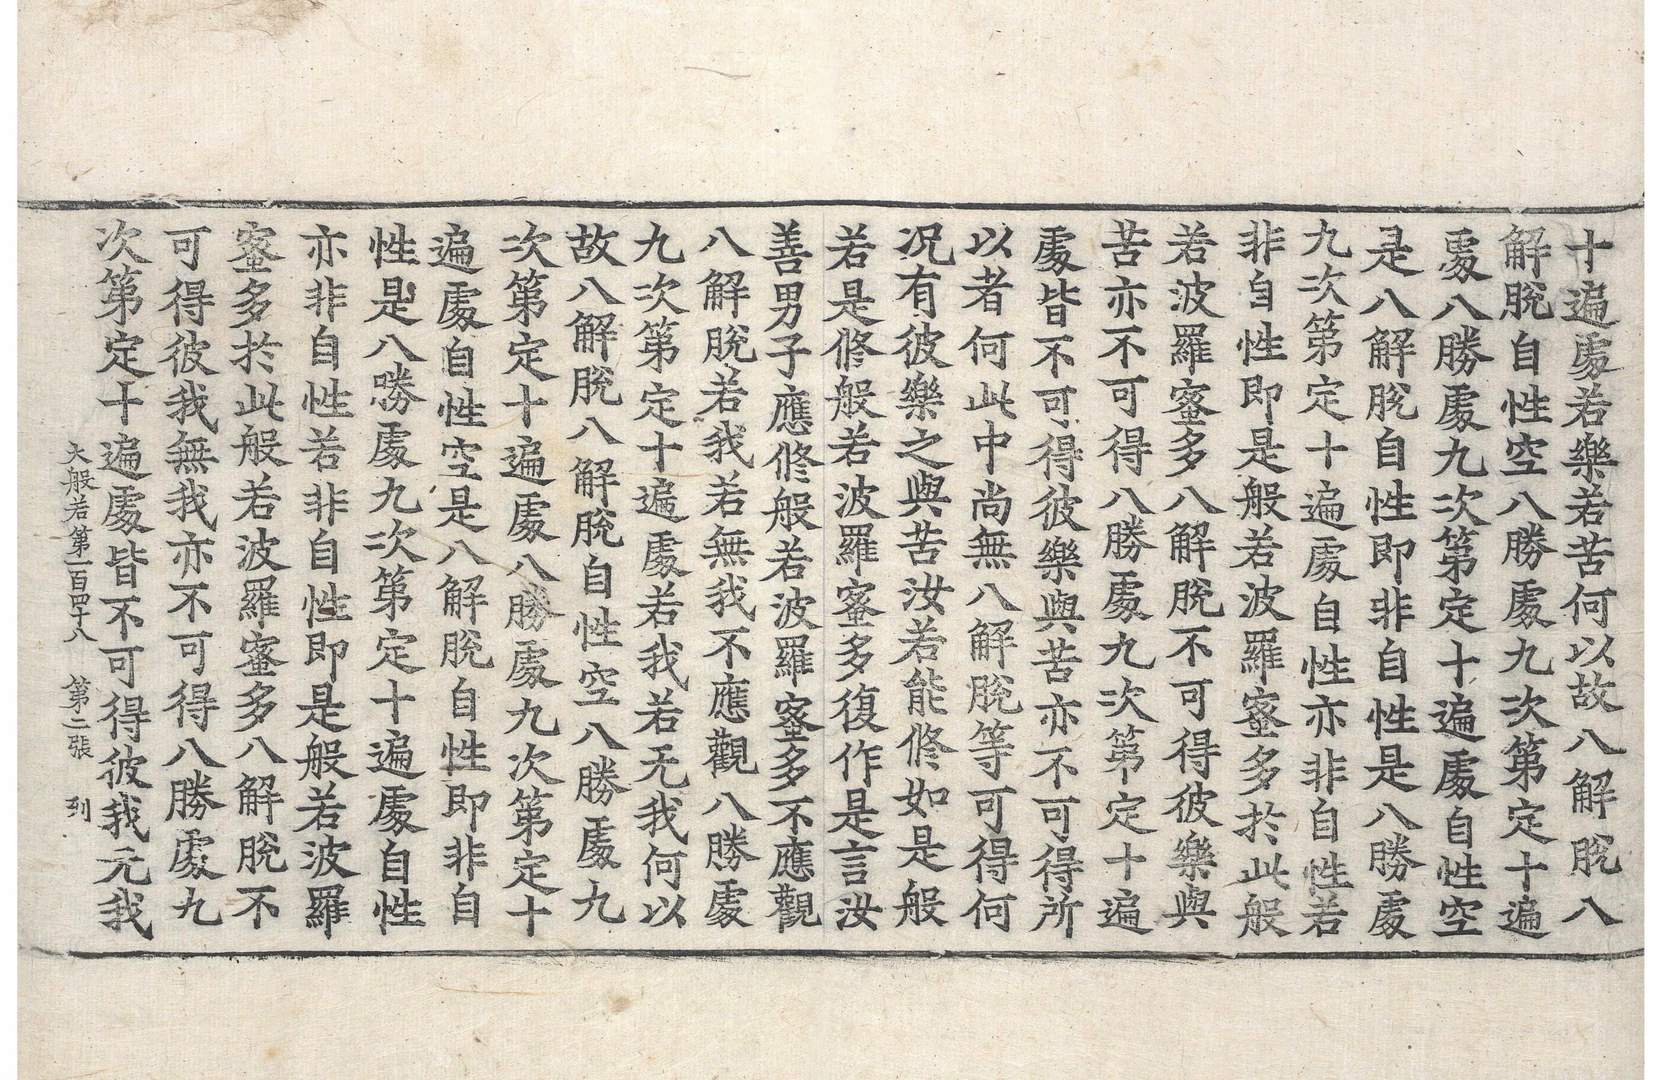 十遍處若樂若苦何以故八解脫八
解脫自性空八勝處九次第定十遍
處八勝處九次第定十遍處自性空
是八解脫自性即非自性是八勝處
九次第定十遍處自性亦非自性若
非自性即是般若波羅蜜多於此般
若波羅蜜多八解脫不可得彼樂與
苦亦不可得八勝處九次第定十遍
處皆不可得彼樂與苦亦不可得所
以者何此中尚無八解脫等可得何
况有彼樂之與苦汝若能修如是般
若是修般若波羅蜜多復作是言汝
善男子應修般若波羅蜜多不應觀
八解脫若我若無我不應觀八勝處
九次第定十遍處若我若无我何以
故八解脫八解脫自性空八勝處九
次第定十遍處八勝處九次第定十
遍處自性空是八解脫自性即非自
性是八勝處九次第定十遍處自性
亦非自性若非自性即是般若波羅
蜜多於此般若波羅蜜多八解脫不
可得彼我無我亦不可得八勝處九
次第定十遍處皆不可得彼我无我
大般若第一百四十八 第二張 列